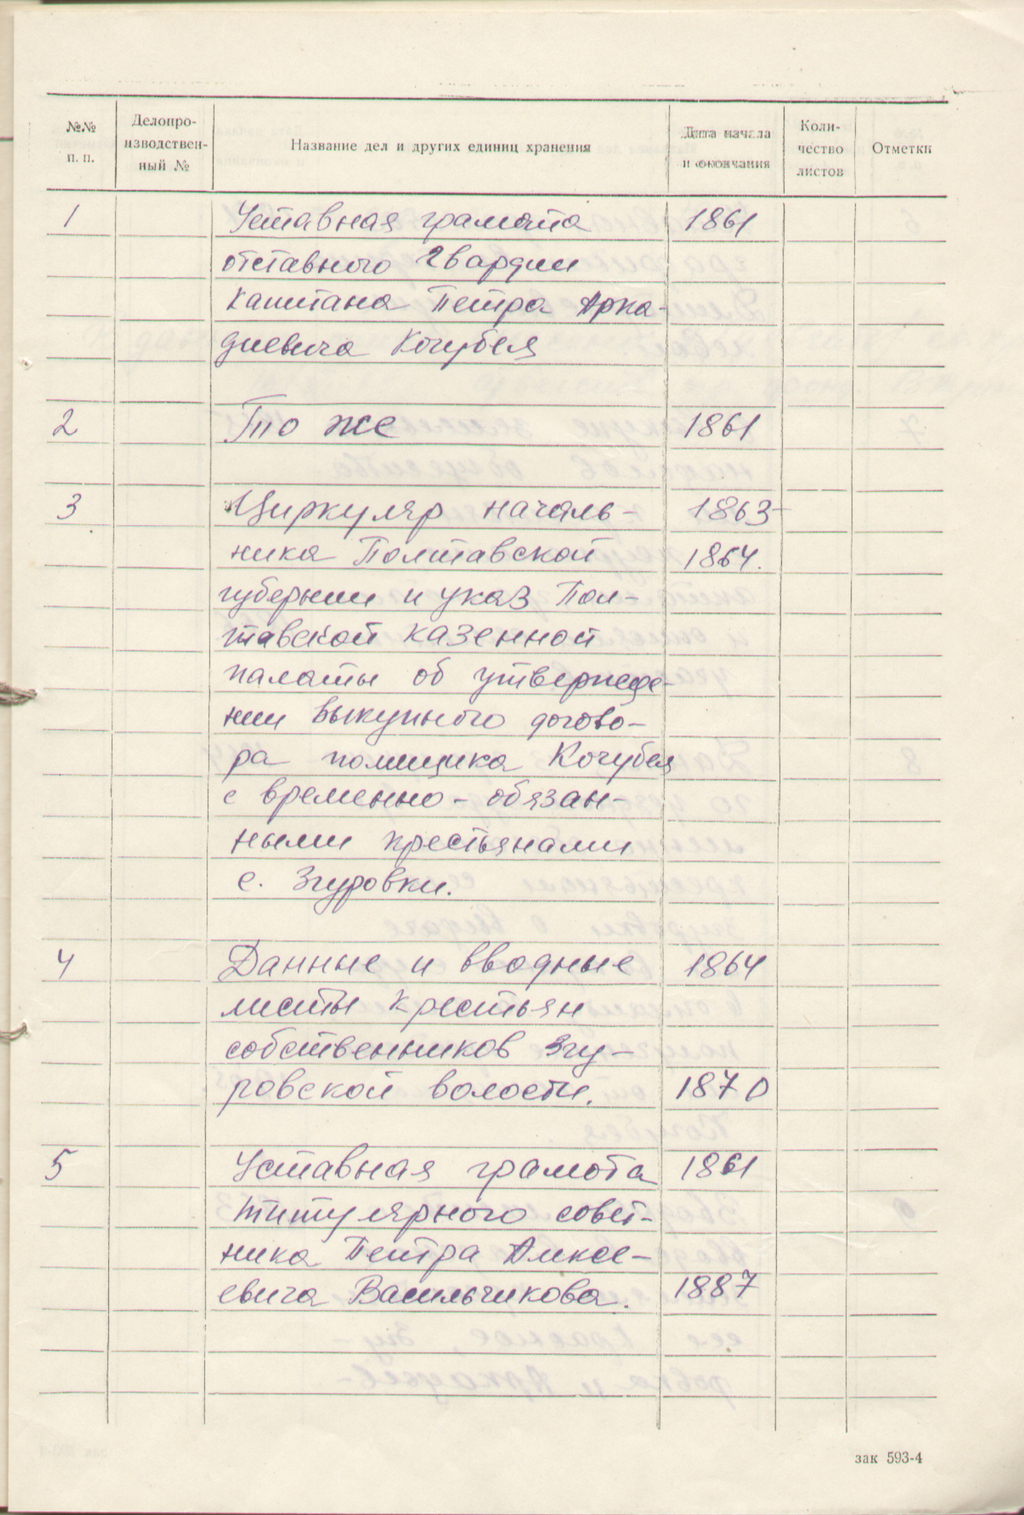 №№ п. п.
Делопро-
изводствен-
ный №
Название дел и других единиц хранения
Дата начала
и окончания
Коли-
чество
листов
Отметки
1 Уставная грамота 1861
отставного гвардии
капитана Петра Арка-
диевича Кочубея
2 То же 1861
3 Циркуляр началь- 1863-
ника Полтавской 1864.
губернии и указ Пол-
тавской казенной
палаты об утвержде-
нии выкупного догово-
ра помещика Кочубея
с временно-обязан-
ными крестьянами
с. Згуровки.
4 Данные и вводные 1864
листы крестьян
собственников Згу-
ровской волости. 1870
5 Уставная грамота 1861
титулярного совет-
ника Петра Алексе-
евича Васильчикова. 1887
зак 593-4